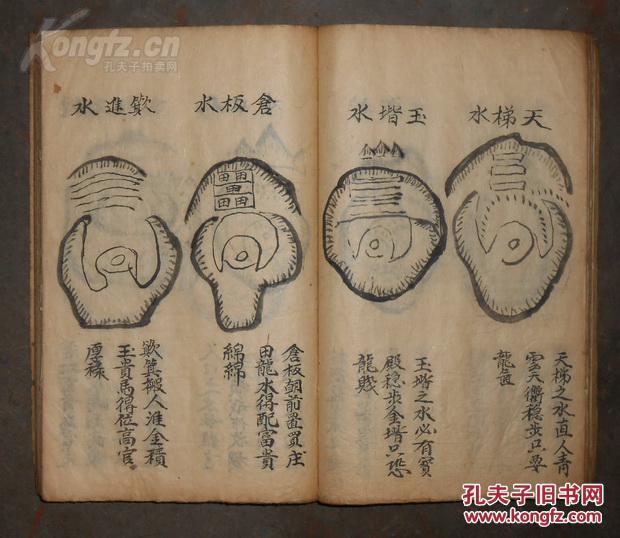 天梯水
天梯之水直人青
雲天衢穩步只要
龍氣
玉堦水
玉堦之水必有寶
殿穩步金堦只恐
龍賤
倉板水
田田
田
田田
倉板朝前置買庄
田龍水得配富貴
綿綿
進水
箕搬人進金積
玉貴馬得位高官
厚祿
Kongfz.cn
孔夫子拍卖网
孔夫子旧书网
www.kongfz.com